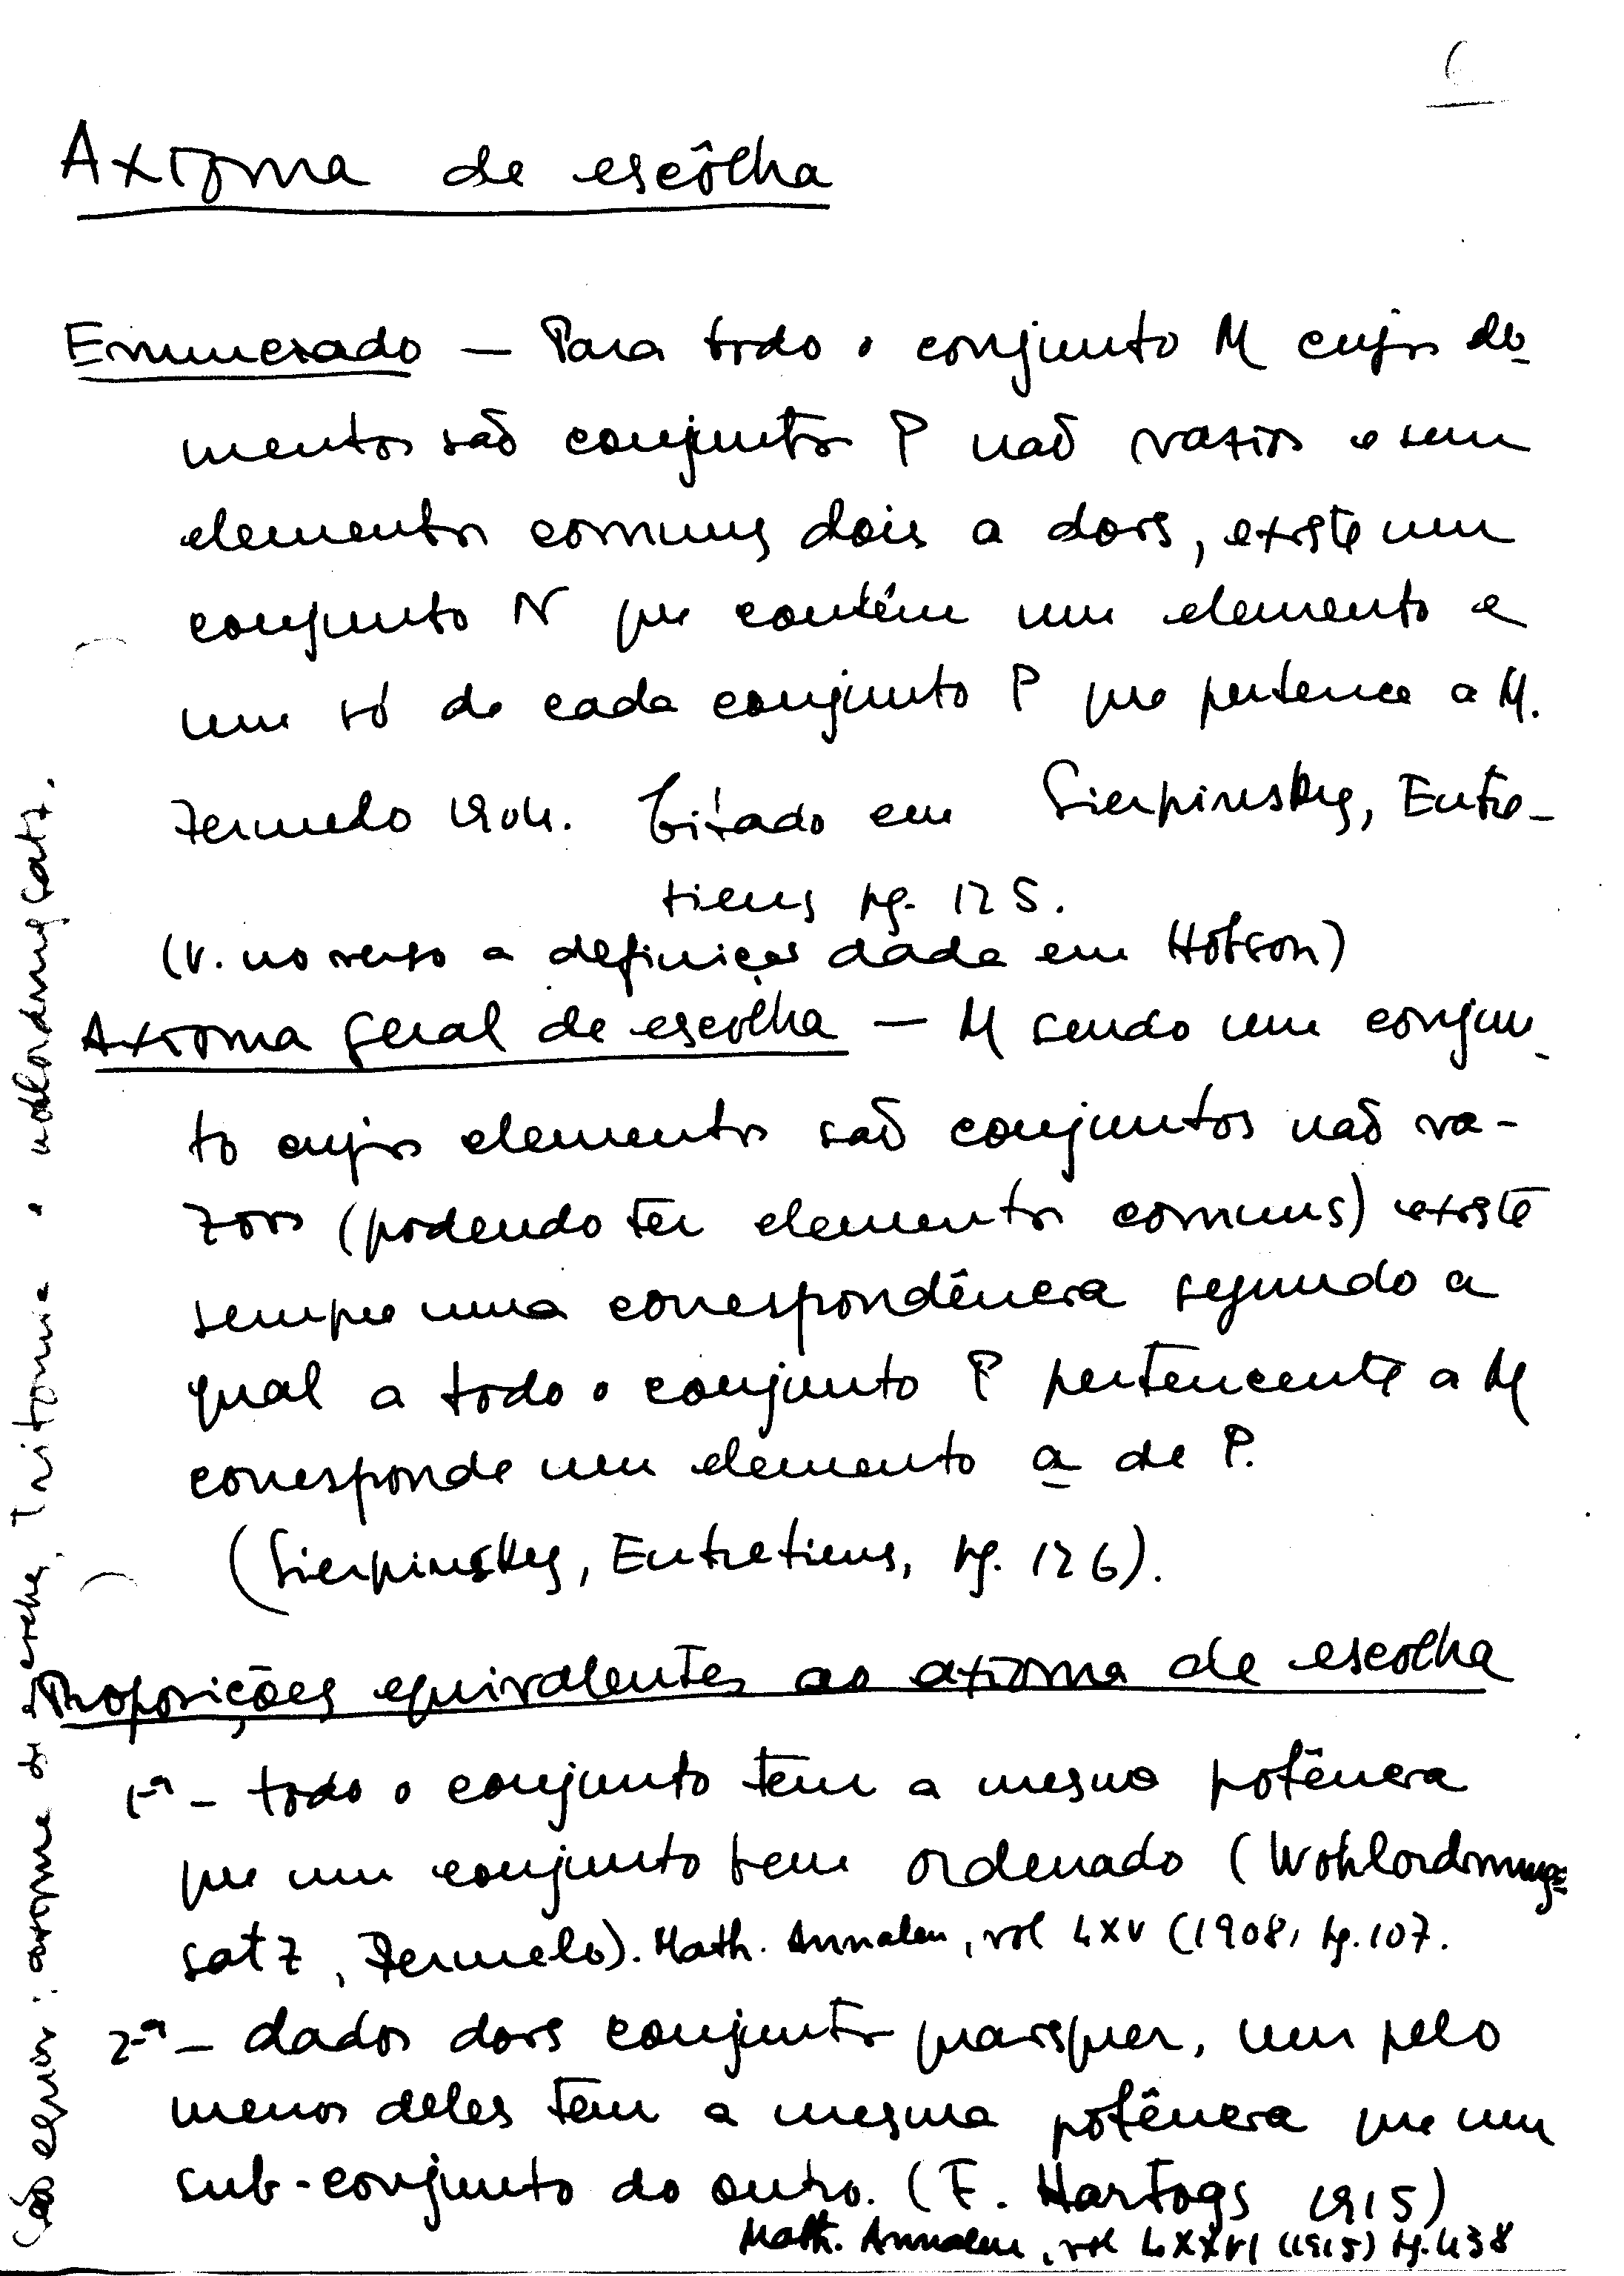 6
Axioma de escôlha
Enunciado — Para todo o conjunto M cujos ele-
mentos são conjuntos P não vazios e sem
elementos comuns dois a dois, existe um
conjunto N que contém um elemento e
um só de cada conjunto P que pertence a M.
Zermelo 1904. Citado em Sierpinsky, Entre-
tiens pg. 125.
(v. no verso a definição dada em Hobson)
Axioma geral de escolha — M sendo um conjun-
to cujos elementos são conjuntos não va-
zios (podendo ter elementos comuns) existe
sempre uma correspondência segundo a
qual a todo o conjunto P pertencente a M
corresponde um elemento a de P.
(Sierpinsky, Entretiens, pg. 126).
Proposições equivalentes ao axioma de escolha
1ª — todo o conjunto tem a mesma potência
que um conjunto bem ordenado (Wohlordnungs-
satz, Zermelo). Math. Annalen, vol LXV (1908, pg. 107.
2ª — dados dois conjuntos quaisquer, um pelo
menos deles tem a mesma potência que um
sub-conjunto do outro. (F. Hartogs 1915)
Math. Annalen, vol LXXVI (1915) pg. 438
São equiv: axioma de escolha, Tricotomia e wohlordnungsatz.